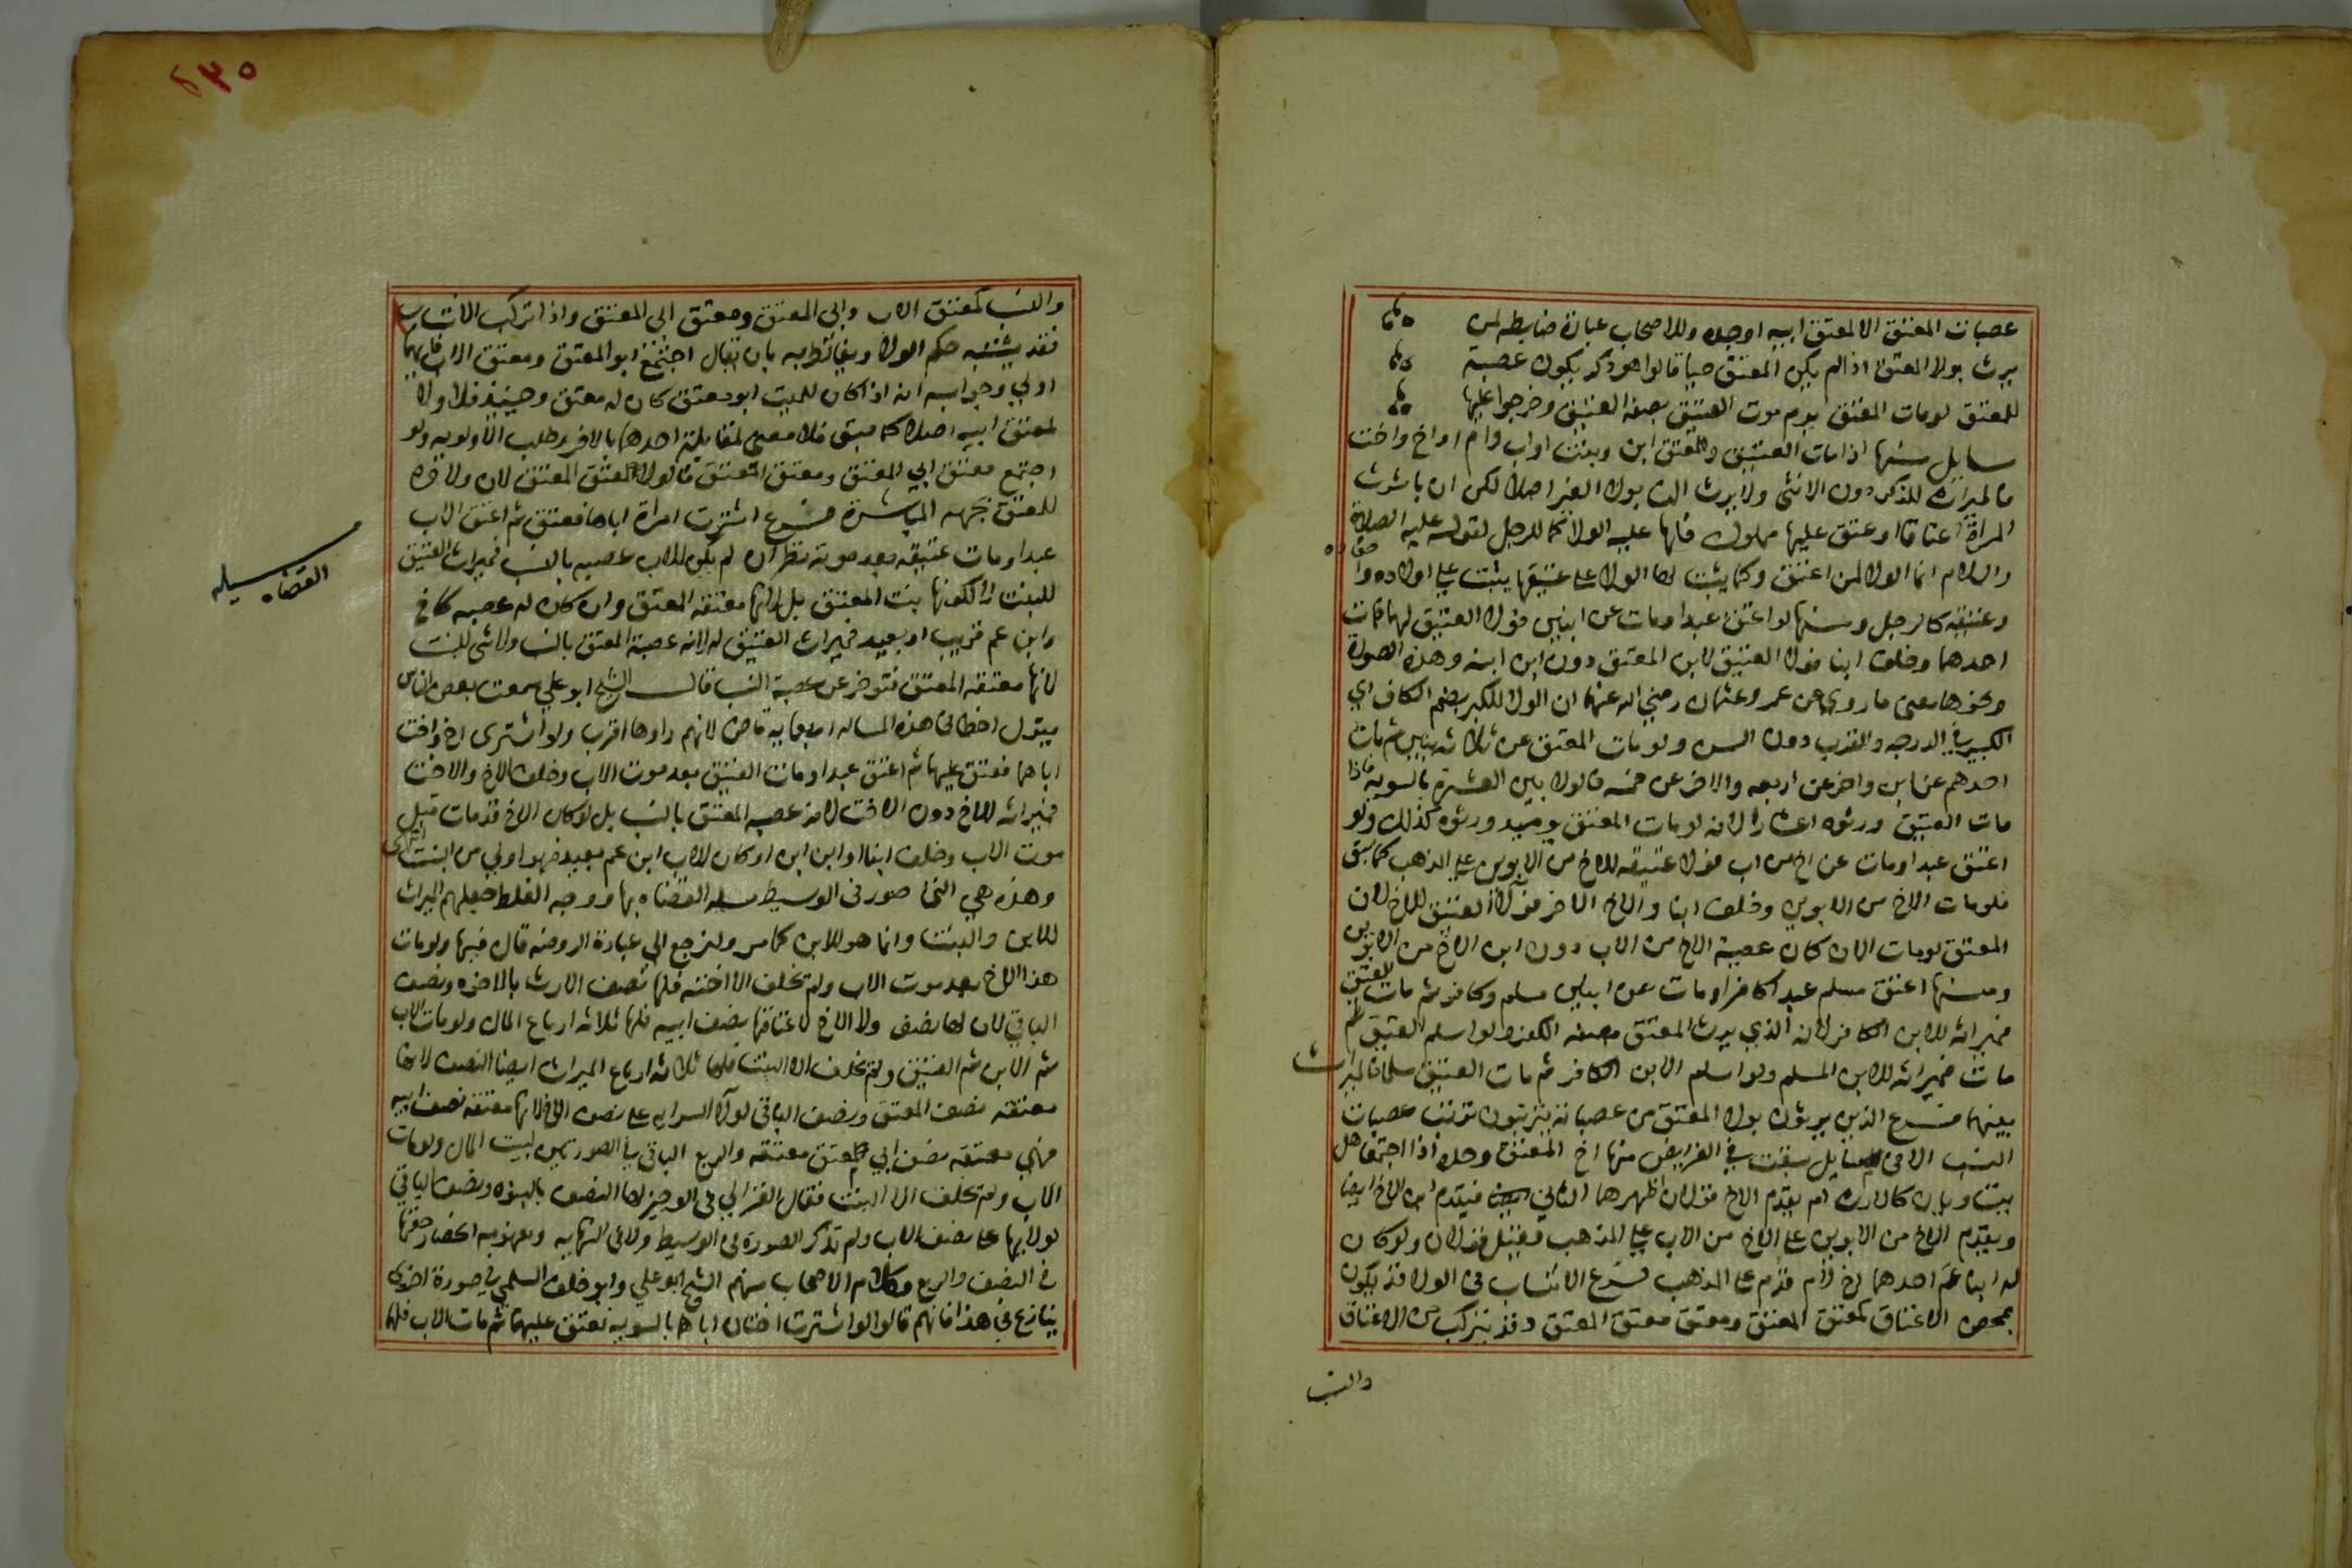 عصبات المعتق الا لمعتق ابيه او جده وللاصحاب عبارة ضابطه لمن
يرث بولا المعتق اذا لم يكن المعتق حيا قالوا هو ذكر يكون عصبة
للمعتق لو مات المعتق يوم موت العتيق بصفة العتيق وخرجوا عليها
مسايل منها اذا مات العتيق وللمعتق ابن وبنت او اب وام او اخ واخت
فالميراث للذكر دون الانثى ولا يرث النسا بولا الغير اصلا لكن ان باشرت
المراة اعتاقا او عتق عليها مملوك فلها عليه الولا كما للرجل لقوله عليه الصلاة
والسلام انما الولا لمن اعتق وكما يثبت لها الولا على عتيقها يثبت على اولاده واحفاده
وعتيقه كالرجل ومنها لو اعتق عبدا ومات عن ابنين فولا العتيق لهما فمات
احدهما وخلف ابنا فولا العتيق لابن المعتق دون ابن ابنه وهذه الصورة
ونحوها معنى ما روي عن عمر وعثمان رضي الله عنهما ان الولا للكبر بضم الكاف اي
الكبير في الدرجه والقرب دون السن ولو مات المعتق عن ثلاثه بنين ثم مات
احدهم عن ابن واخر عن اربعه والاخر عن خمسه فالولا بين العشرة بالسويه فاذا
مات العتيق ورثوه اعشارا لانه لو مات المعتق يوميذ ورثوه كذلك ولو
اعتق عبدا ومات عن اخ من اب فولا عتيقه للاخ من الابوين على المذهب كما سبق
فلو مات الاخ من الابوين وخلف ابنا والاخ الاخر فولا العتيق للاخ لان
المعتق لو مات الان كان عصبة الاخ من الاب دون ابن الاخ من الابوين
ومنها اعتق مسلم عبدا كافرا ومات عن ابنين مسلم وكافر ثم مات العتيق
فميراثه للابن الكافر لانه الذي يرث المعتق بصفه الكفر ولو اسلم العتيق ثم
مات فميراثه للابن المسلم ولو اسلم الابن الكافر ثم مات العتيق مسلما فالميراث
بينهما فرع الذين يرثون بولا المعتق من عصباته يترتبون ترتب عصبات
النسب الا في مسايل سبقت في الفرايض منها اخ المعتق وجده اذا اجتمعا هل
يستويان كالارث ام يقدم الاخ قولان اظهرهما الثاني فيقدم ابن الاخ ايضا
ويقدم الاخ من الابوين على الاخ من الاب على المذهب وقيل قولان ولو كان
له ابنا عم احدهما اخ لام قدم على المذهب فرع الانتساب في الولا قد يكون
بمحض الاعتاق كمعتق المعتق ومعتق معتق المعتق وقد يتركب من الاعتاق
والنسب
٢٣٥
والنسب كمعتق الاب وابي المعتق ومعتق ابي المعتق واذا تركب الانتساب
فقد يشتبه حكم الولا ويغالط به بان يقال اجتمع ابو المعتق ومعتق الاب فايهما
اولي وجوابه انه اذا كان للميت ابو معتق كان له معتق وحينيذ فلا ولا
لمعتق ابيه اصلا كما سبق فلا معنى لمقابلة احدهما بالاخر وطلب الاولويه ولو
اجتمع معتق ابي المعتق ومعتق المعتق فالولا لمعتق المعتق لان ولاءه
للمعتق بجهة المباشرة فرع اشترت امراة اباها فعتق ثم اعتق الاب
عبدا ومات عتيقه بعد موته نظر ان لم يكن للاب عصبه بالنسب فميراث العتيق
للبنت لا لكونها بنت المعتق بل لانها معتقه المعتق وان كان له عصبه كاخ
وابن عم قريب او بعيد فميراث العتيق له لانه عصبة المعتق بالنسب ولا شي للبنت
لانها معتقه المعتق فتوخر عن عصبة النسب قال الشيخ ابو علي سمعت بعض الناس
يقول اخطا في هذه المساله اربعمايه قاض لانهم راوها اقرب ولو اشترى اخ واخت
اباهما فعتق عليهما ثم اعتق عبدا ومات العتيق بعد موت الاب وخلف الاخ والاخت
فميراثه للاخ دون الاخت لانه عصبه المعتق بالنسب بل لو كان الاخ قد مات قبل
موت الاب وخلف ابنا او ابن ابن او كان للاب ابن عم بعيد فهو اولي من البنت انتهى
وهذه هي التي صور في الوسيط مسله القضاه بها ووجه الغلط جعلهم الميراث
للابن والبنت وانما هو للابن كما مر ولنرجع الي عبارة الروضه قال فيها ولو مات
هذا الاخ بعد موت الاب ولم تخلف الا اخته فلها نصف الارث بالاخوه ونصف
الباقي لان لها نصف ولا الاخ لاعتاقها نصف ابيه فلها ثلاثه ارباع المال ولو مات الاب
ثم الابن ثم العتيق ولم يخلف الا البنت فلها ثلاثه ارباع الميراث ايضا النصف لانها
معتقه نصف المعتق ونصف الباقي لولا السرايه على نصف الاخ لانها معتقه نصف ابيه
فهي معتقه نصف ابي معتق معتقه والربع الباقي في الصورتين لبيت المال ولو مات
الاب ولم يخلف الا البنت فقال الغزالي في الوجيز لها النصف بالبنوه ونصف الباقي
لولائها على نصف الاب ولم تذكر الصورة في الوسيط ولا في النهايه ومفهومه انحصار حقها
في النصف والربع وكلام الاصحاب منهم الشيخ ابو علي وابو خلف السلمي في صورة اخرى
ينازع في هذا فانهم قالوا لو اشترت اختان اباهما بالسويه فعتق عليهما ثم مات الاب فلهما
مسيله
القضاه